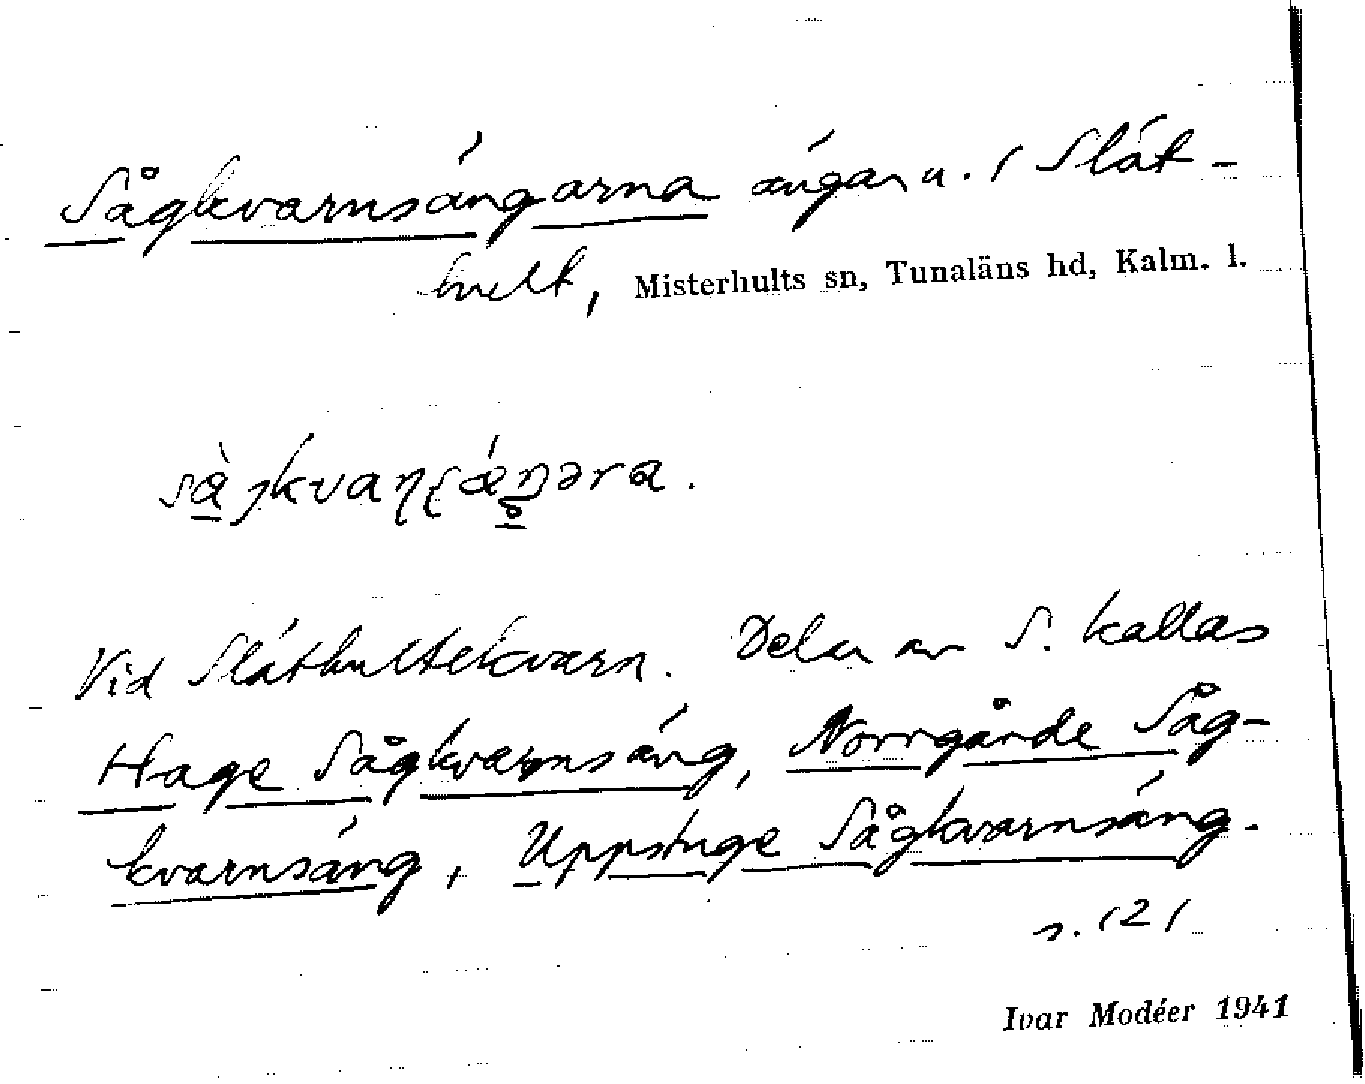 Sågkvarnsängarna ängar u. / Slät-
hult, Misterhults sn, Tunaläns hd, Kalm. l.
Vid Släthultekvarn. Delar av S. kallas
Hage Sågkvarnsäng, Norrgårde Såg-
kvarnsäng, Uppstuge Sågkvarnsäng.
s. 121
Ivar Modéer 1941